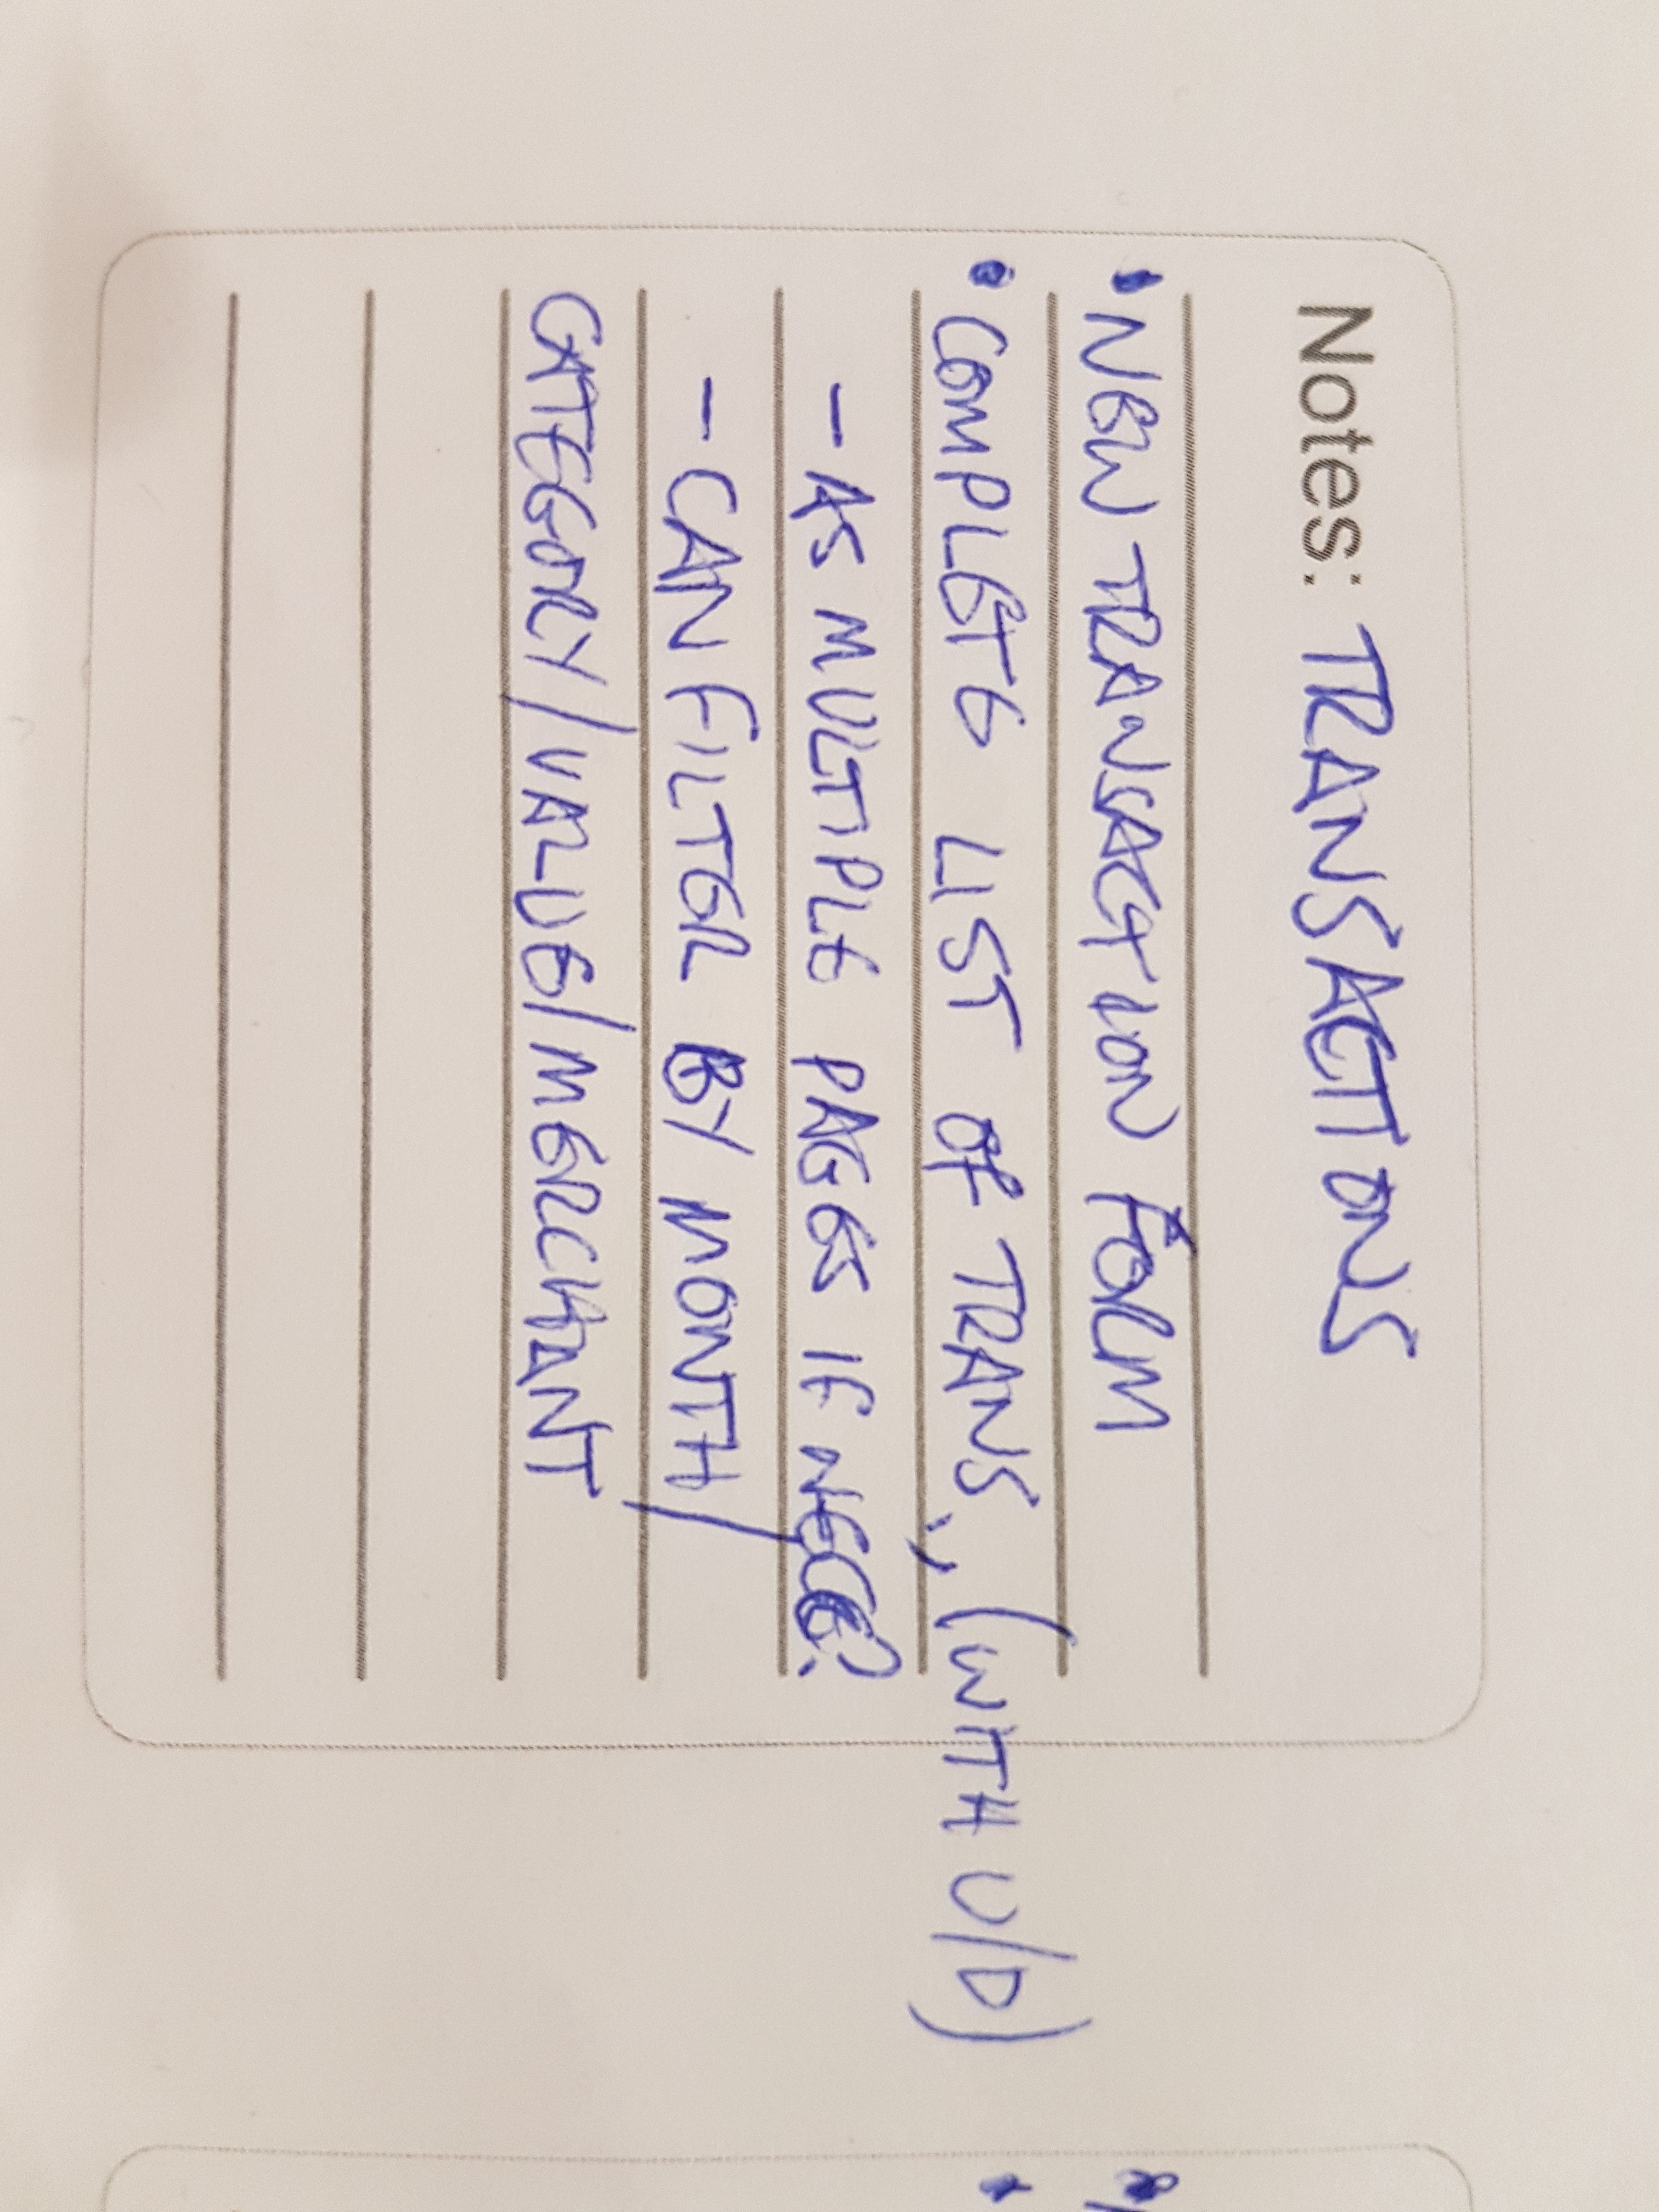 Notes: TRANSACTIONS
• NEW TRANSACTION FORM
• COMPLETE LIST OF TRANS., (WITH U/D)
- AS MULTIPLE PAGES IF
- CAN FILTER BY MONTH/
CATEGORY/VALUE/MERCHANT